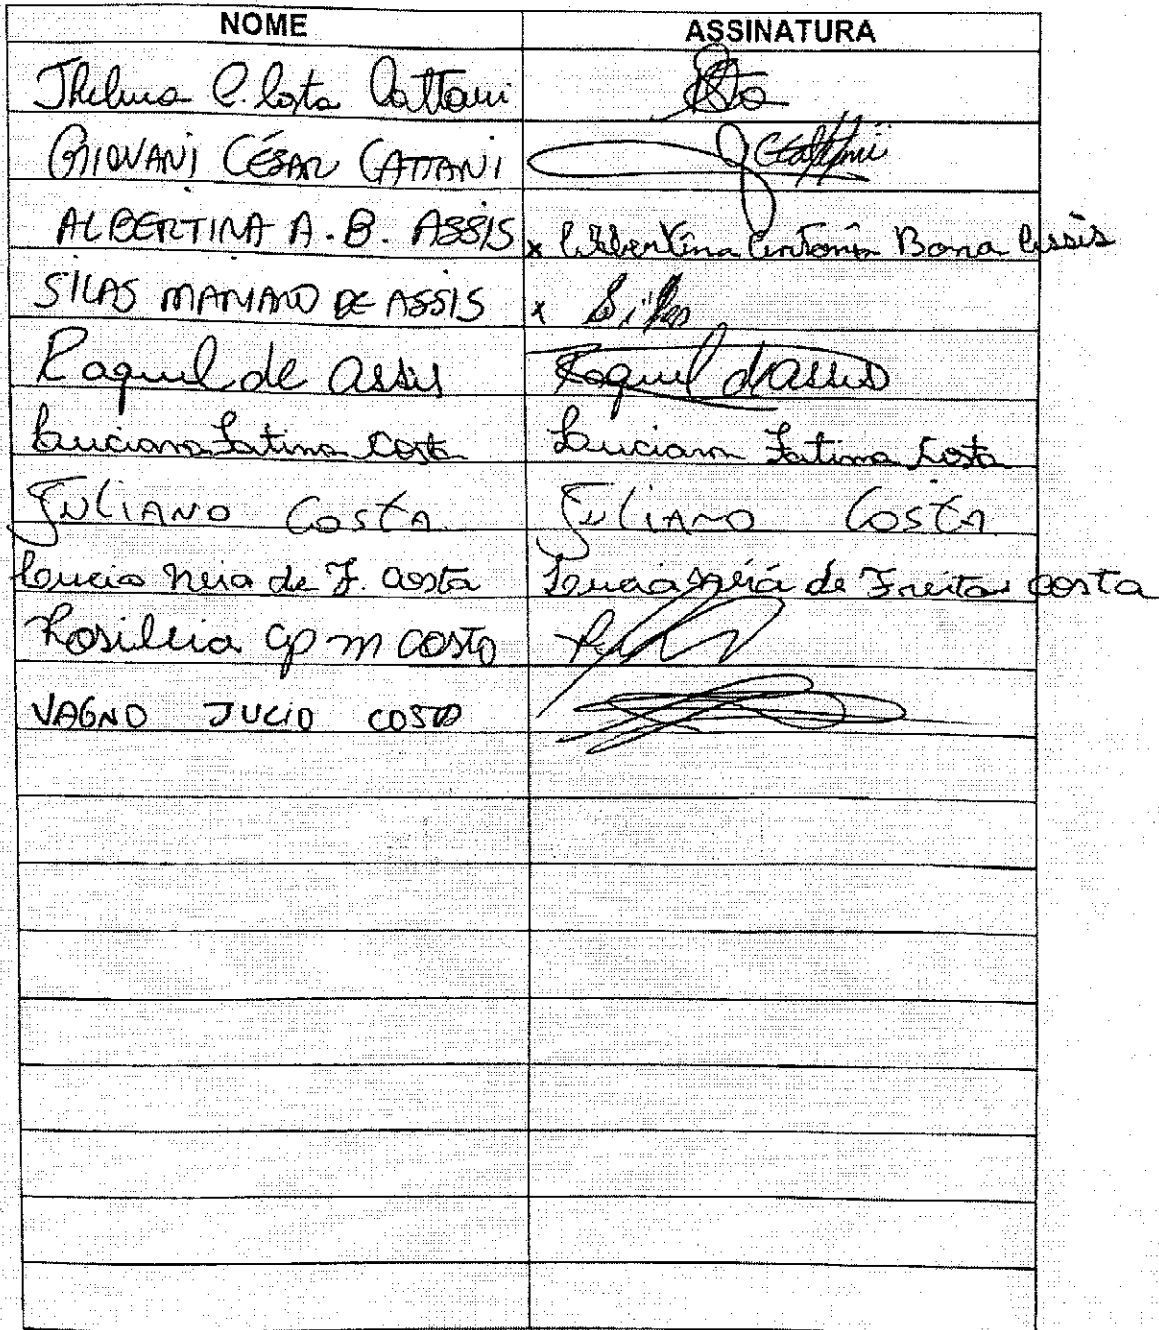 NOME ASSINATURA
Thelma C. Costa Cattani
GIOVANI CÉSAR CATTANI GCattani
ALBERTINA A. B. ASSIS x Albertina Antonia Bona Assis
SILAS MARIANO DE ASSIS x Silas
Raquel de Assis Raquel d Assis
Luciana Fatima Costa Luciana Fatima Costa
JULIANO COSTA JULIANO COSTA
Lucia Neia de F. Costa Lucia Neia de Freitas Costa
Rosileia ap m costa
VAGNO JUCIO COSTA